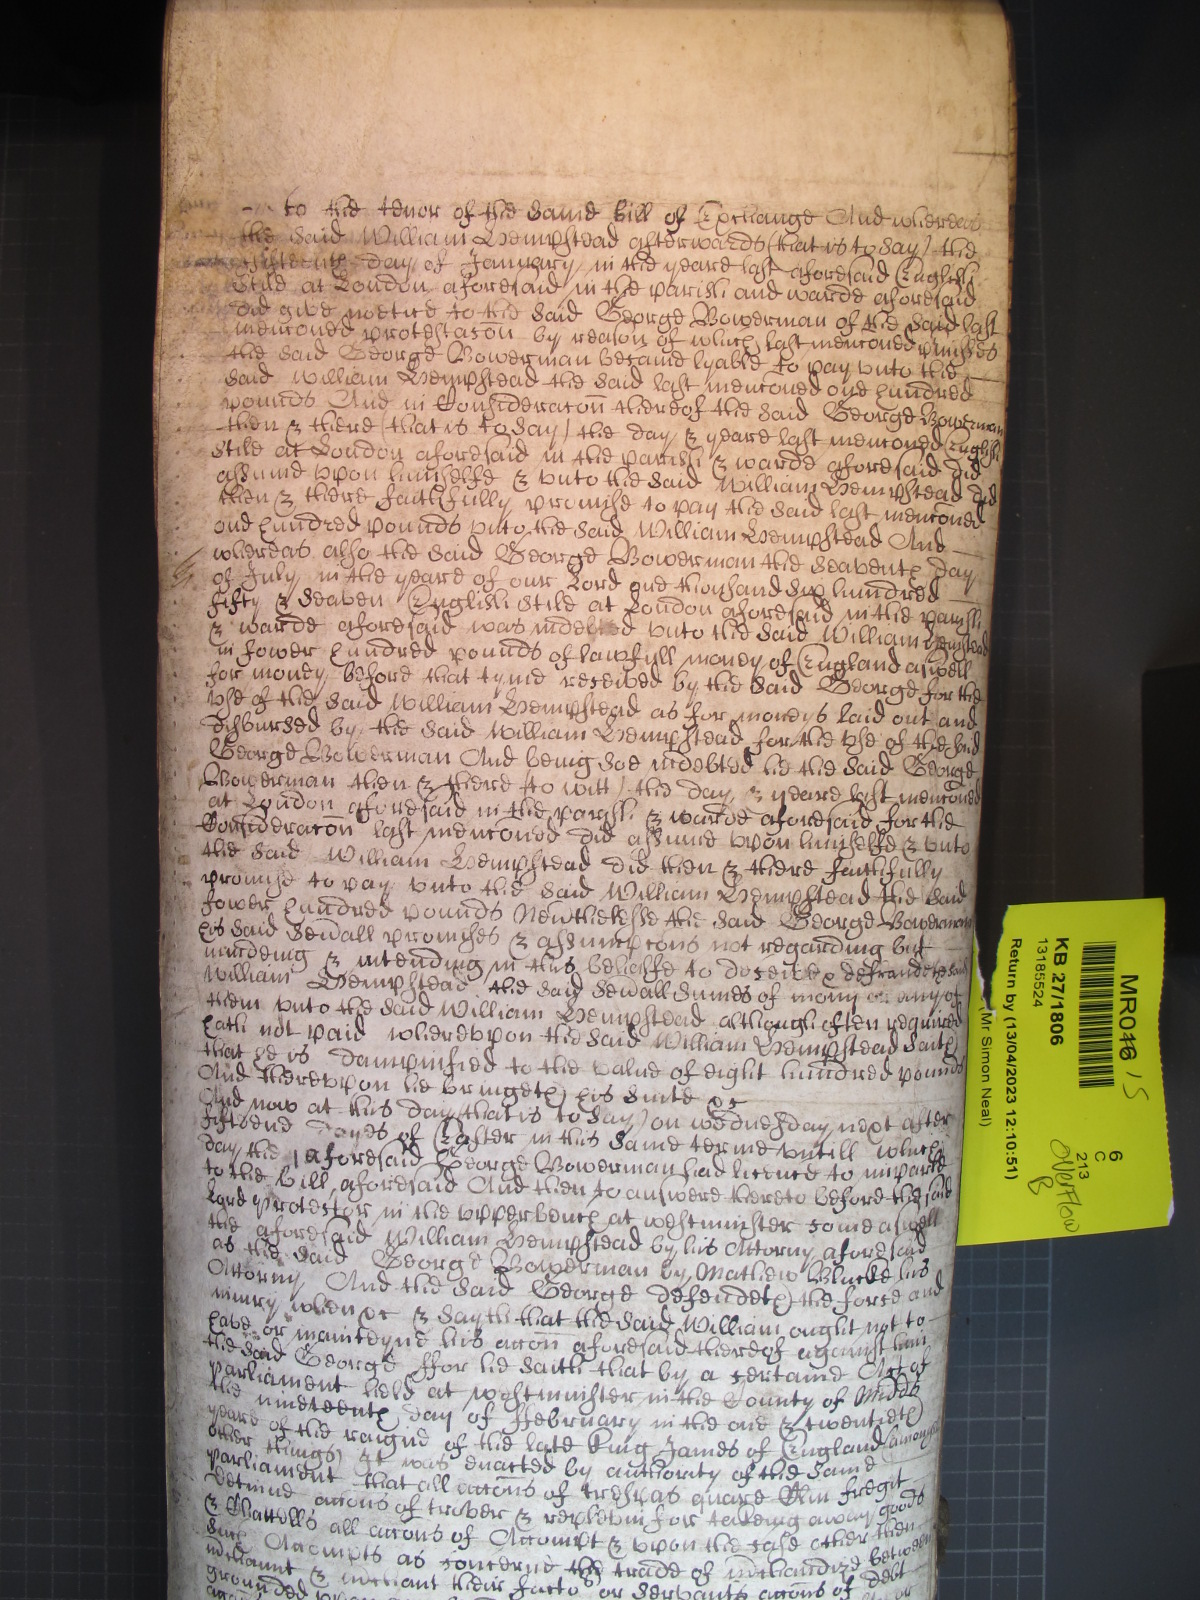 to the tenor of the same bill of Exchange And whereas
the said William Hempstead afterwards (that is to say) the
fifteenth day of January in the yeare last aforesaid English
Stile at London aforesaid in the parish and warde aforesaid
did give notice to the said George Bowerman of the said last
menconed protestacon by reason of which last menconed premisses
the said George Bowerman became lyable to pay vnto the
said William Hempstead the said last menconed one hundred
pounds And in Consideracon thereof the said George Bowerman
then & there (that is to say) the day & yeare last menconed English
Stile at London aforesaid in the parish & warde aforesaid did
assume vpon himselfe & vnto the said William Hempstead did
then & there faithfully promise to pay the said last menconed
one hundred pounds vnto the said William Hempstead And
whereas also the said George Bowerman the seaventh day
of July in the yeare of our Lord one thousand six hundred
fifty & seaven English Stile at London aforesaid in the parish
& warde aforesaid was indebted vnto the said William Hempstead
in fower hundred pounds of lawfull money of England aswell
for money before that tyme received by the said George for the
vse of the said William Hempstead as for moneys laid out and
disbursed by the said William Hempstead for the vse of the said
George Bowerman And being soe indebted he the said George
Bowerman then & there (to witt) the day & yeare last menconed
at London aforesaid in the parish & warde aforesaid for the
Consideracon last menconed did assume vpon himselfe & vnto
the said William Hempstead did then & there faithfully
promise to pay vnto the said William Hempstead the said
fower hundred pounds Neverthelesse the said George Bowerman
his said sevall promises & assumpcons not regarding but
mindeing & intending in this behalfe to deceive & defraude the said
William Hempstead the said sevall sumes of mony or any of
them vnto the said William Hempstead although often required
hath not paid wherevpon the said William Hempstead saith
that he is dampnified to the value of eight hundred pounds
And therevpon he bringeth his suite &c
And now at this day (that is to say) on wednesday next after
fifteene dayes of Easter in this same terme vntill which
day the aforesaid George Bowerman had licence to imparle
to the bill aforesaid And then to answere thereto before the said
Lord Protector in the vpper bench at westminster come aswell
the aforesaid William Hempstead by his Attorny aforesaid
as the said George Bowerman by Mathew Blucke his
Attorny And the said George defendeth the force and
iniury when &c & saith that the said William ought not to
have or mainteyne his accon aforesaid thereof against him
the said George ffor he saith that by a certaine Act of
Parliament held at westminster in the County of Midds
the nineteenth day of ffebruary in the one & twentieth
yeare of the raigne of the late King James of England (amongst
other things) It was enacted by authority of the same
parliament that all accons of trespas quare Clm fregit
detinue accons of trover & replevin for takeing away goods
& Cattells all accons of Accompt & vpon the case other then
such Accompts as concerne the trade of mchandize between
mchant & mchant their factors or servants accons of debt
grounded vpon
MR046 15
KB 27/1806
13185524
Return by (13/04/2023 12:10:51)
(Mr Simon Neal)
6
C
213
Overflow
B